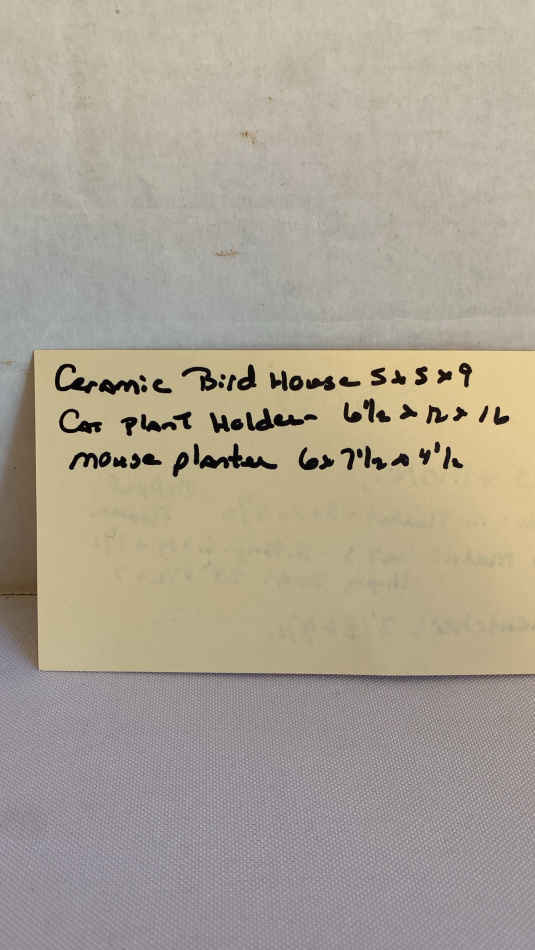 Ceramic Bird House 5x5x9
Cat Plant Holder 6 1/2 x 12 x 16
mouse planter 6x7 1/2 x 4 1/2